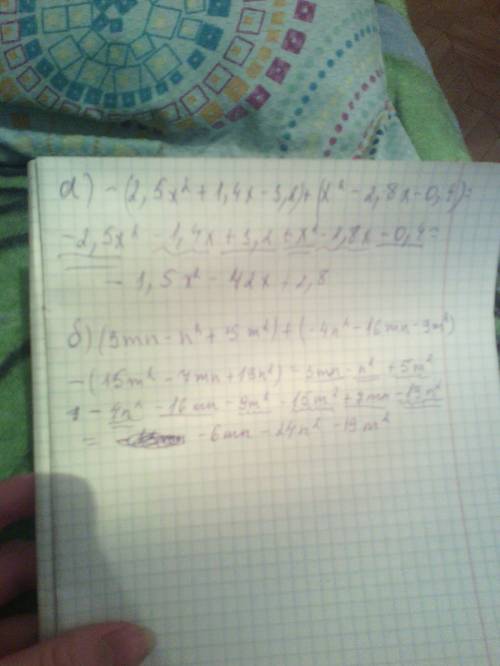 а) -(2,5x² + 1,4x - 3,2) + (x² - 2,8x - 0,4) =
-2,5x² - 1,4x + 3,2 + x² - 2,8x - 0,4 =
- 1,5x² - 42x + 2,8
б) (3mn - n² + 5m²) + (-4n² - 16mn - 9m²)
- (15m² - 7mn + 19n²) = 3mn - n² + 5m²
- 4n² - 16mn - 9m² - 15m² + 7mn - 19n²
= -6mn - 24n² - 19m²